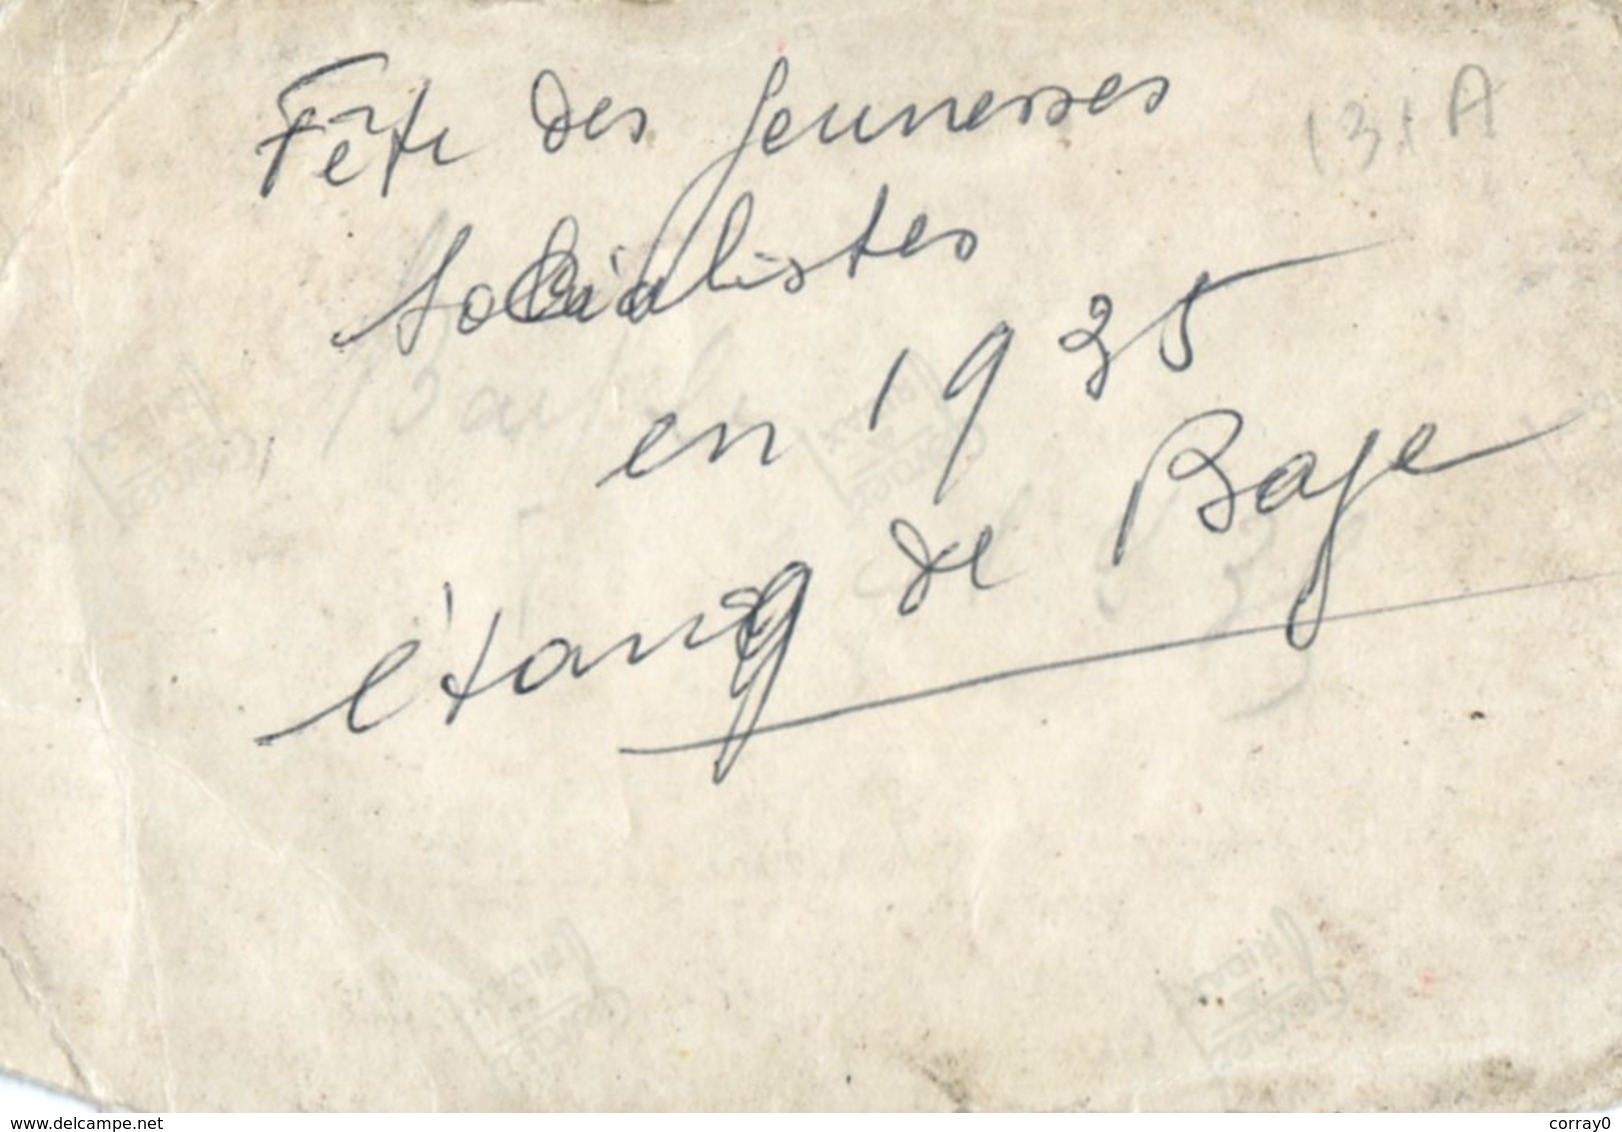 Fête des Jeunesses
131 A
Socialistes
en 1935
étang de Bage
delcampe.net
corray0